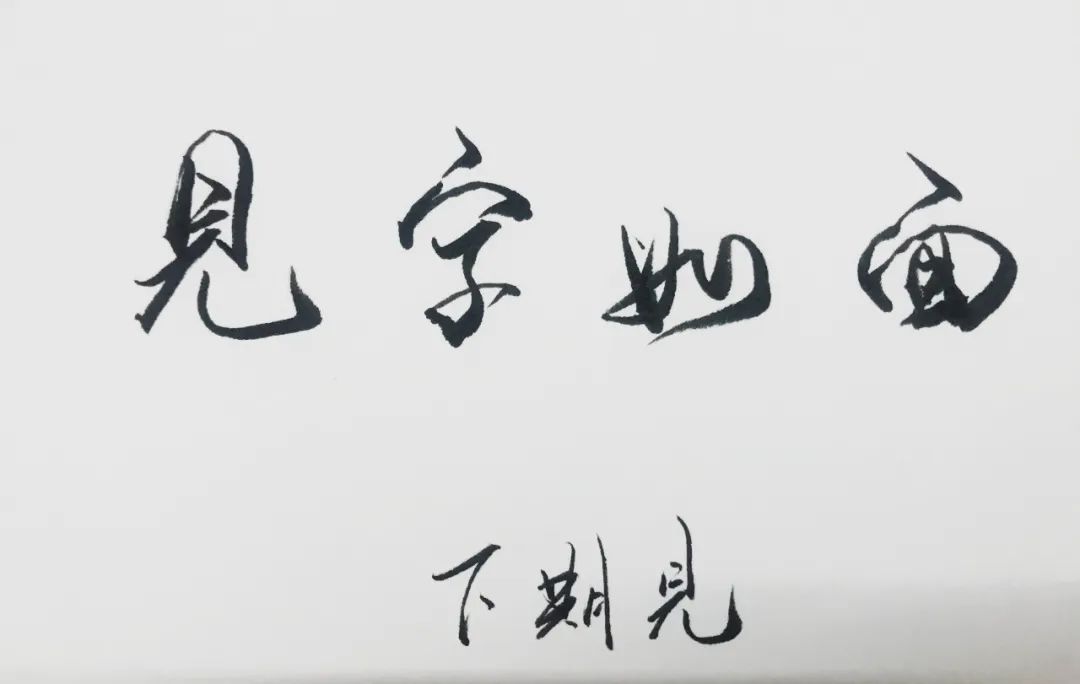 見字如面
下期見